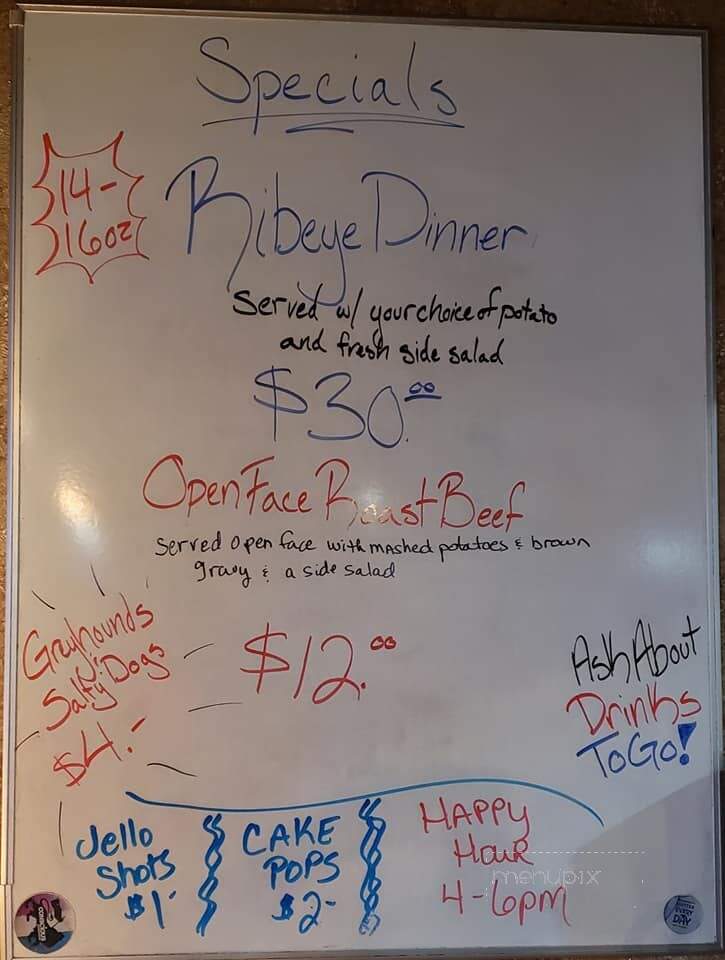 Specials
14-
16oz
Ribeye Dinner
Served w/ your choice of potato
and fresh side salad
$30.00
Open Face Roast Beef
Served open face with mashed potatoes & brown
gravy & a side salad
$12.00
Greyhounds
&
Salty Dogs
$4.-
Ask About
Drinks
To Go!
Jello
Shots
$1-
CAKE
POPS
$2-
HAPPY
Hour
4-6pm
menupix
EVERY
DAY